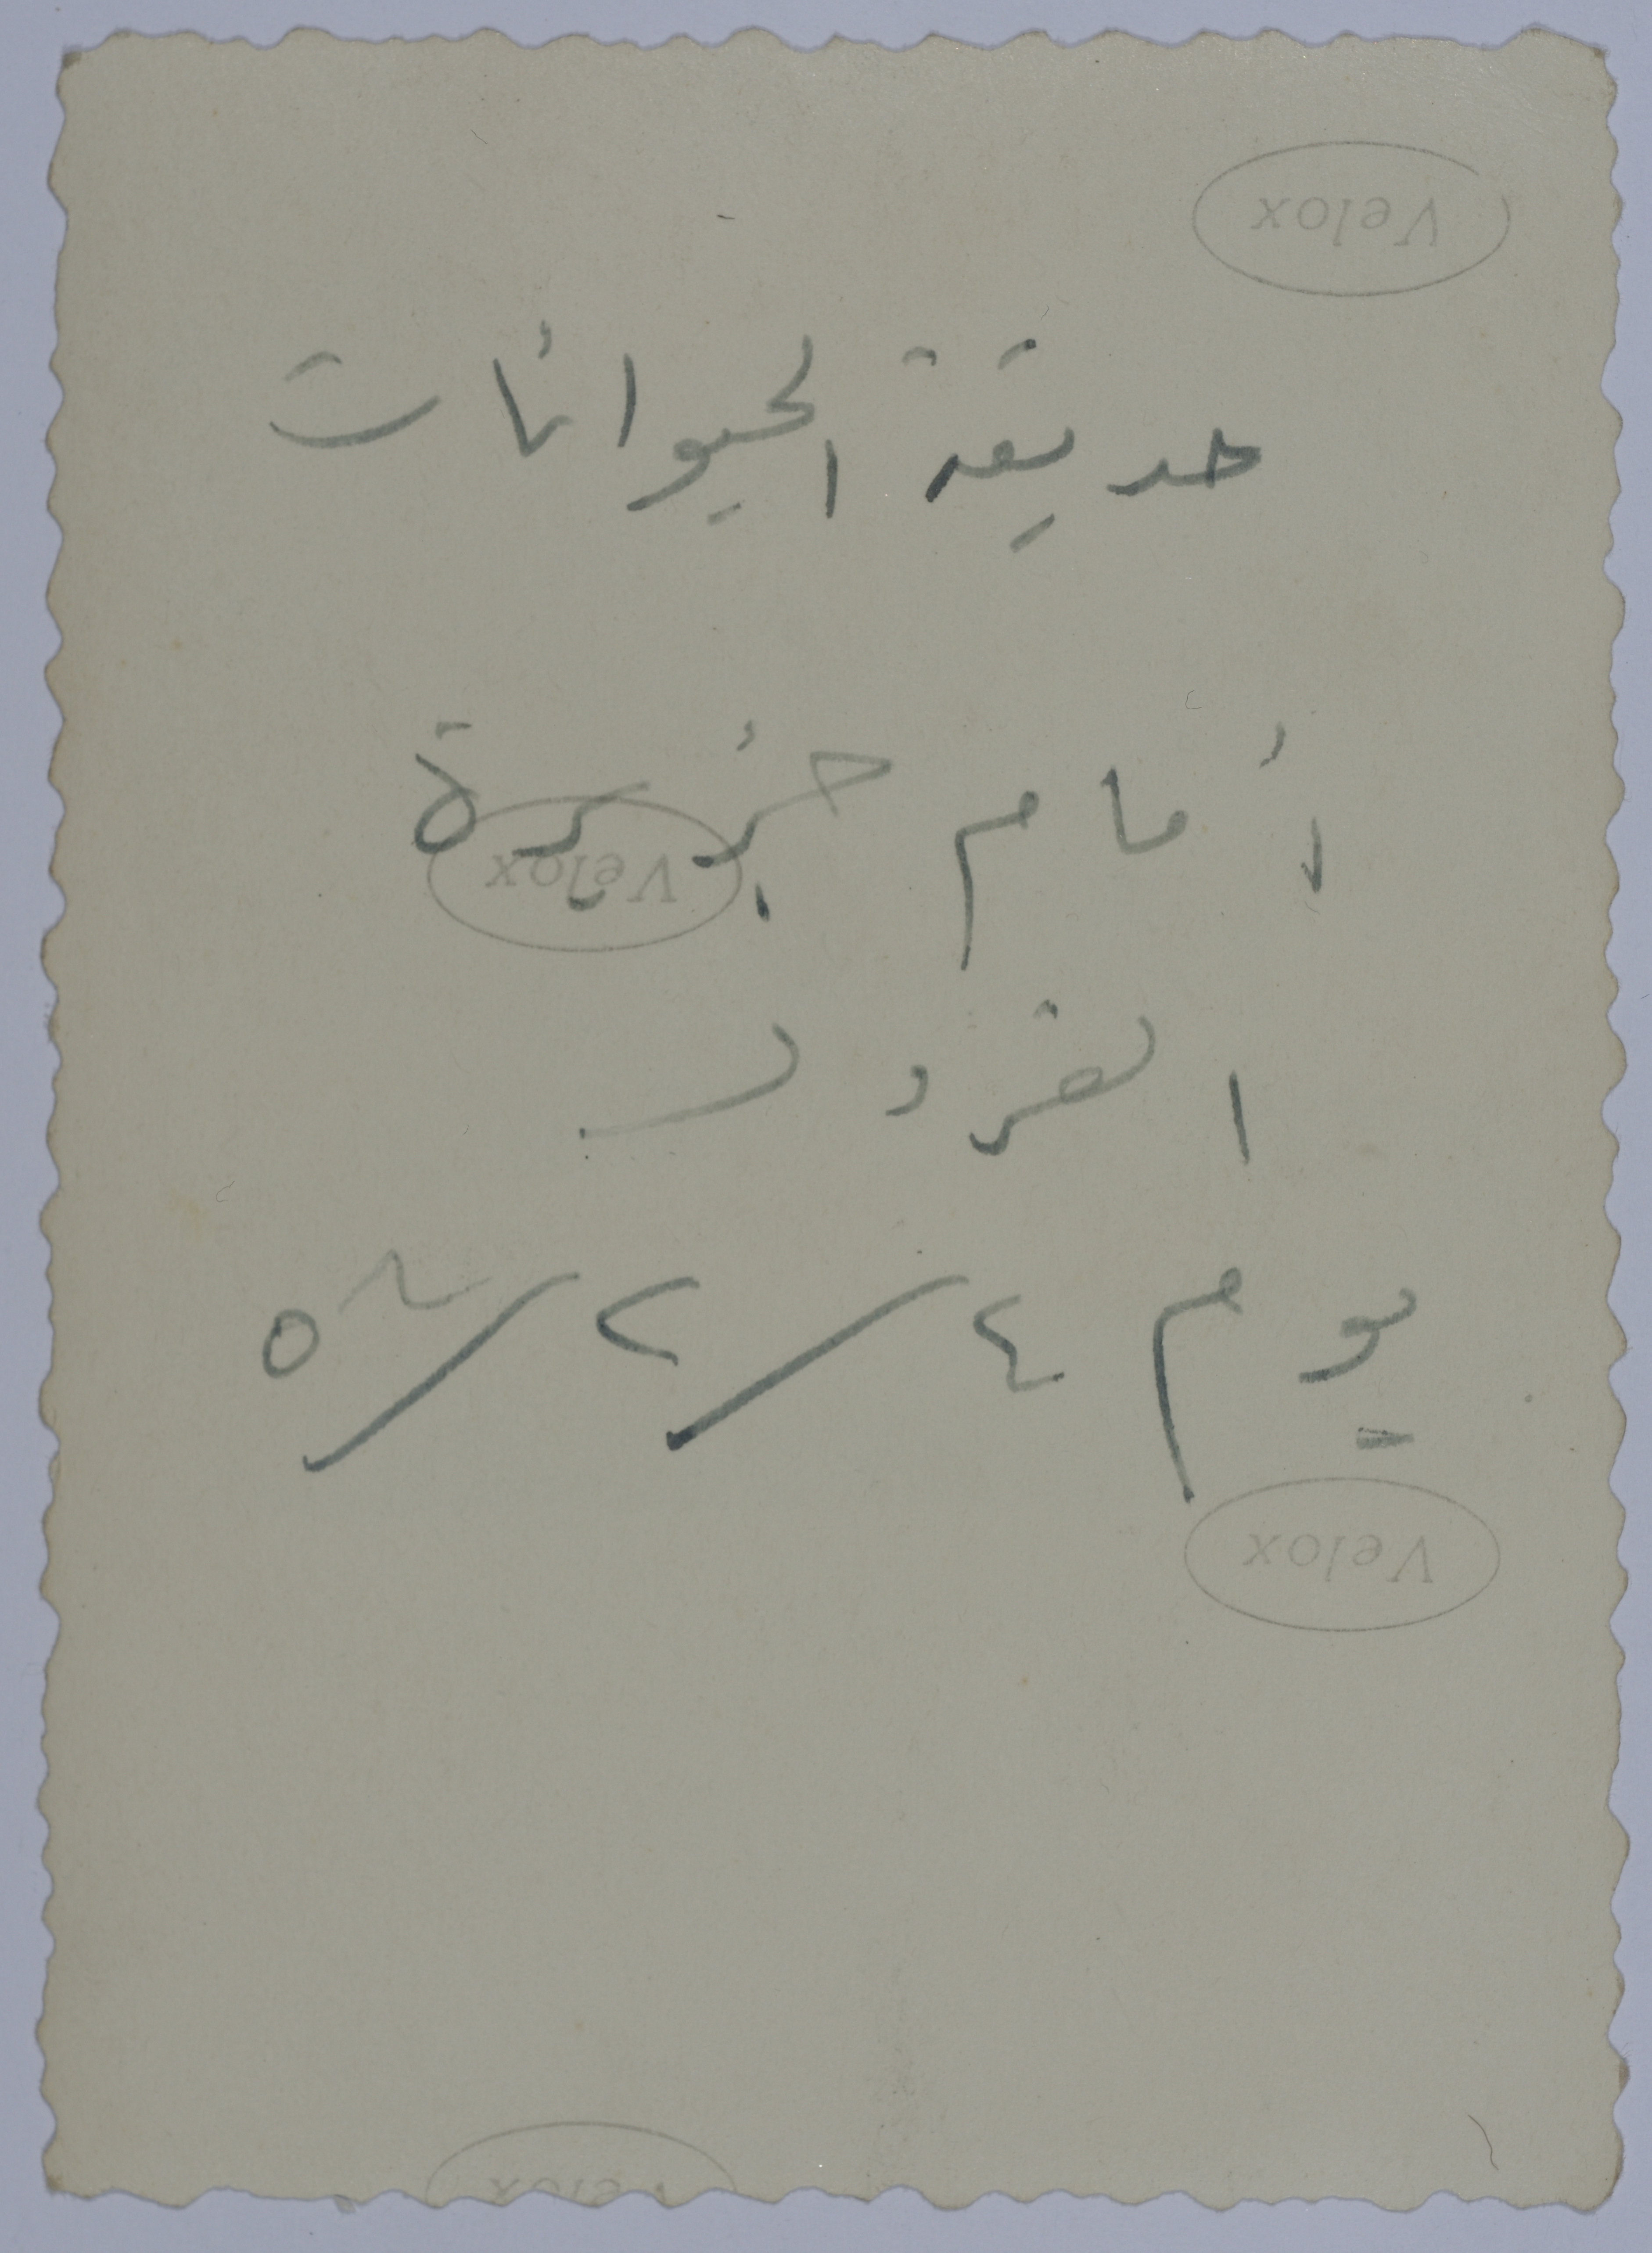 Velox
حديقة الحيوانات
أمام جزيرة
Velox
القرود
يوم ٤/٢/٥
Velox
Velox